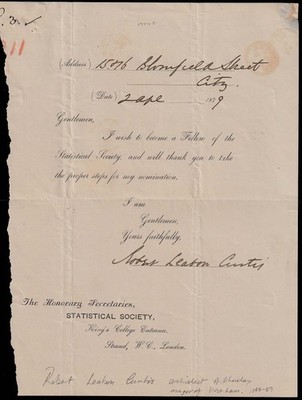 11
(Address) 15 & 16 Blomfield Street
City.
(Date) 2 Apl 1879
Gentlemen,
I wish to become a Fellow of the
Statistical Society, and will thank you to take
the proper steps for my nomination.
I am
Gentlemen,
Yours faithfully,
Robt Leabon Curtis
The Honorary Secretaries,
STATISTICAL SOCIETY,
King's College Entrance,
Strand, W.C., London.
Robert Leabon Curtis architect &
mayor of West Ham